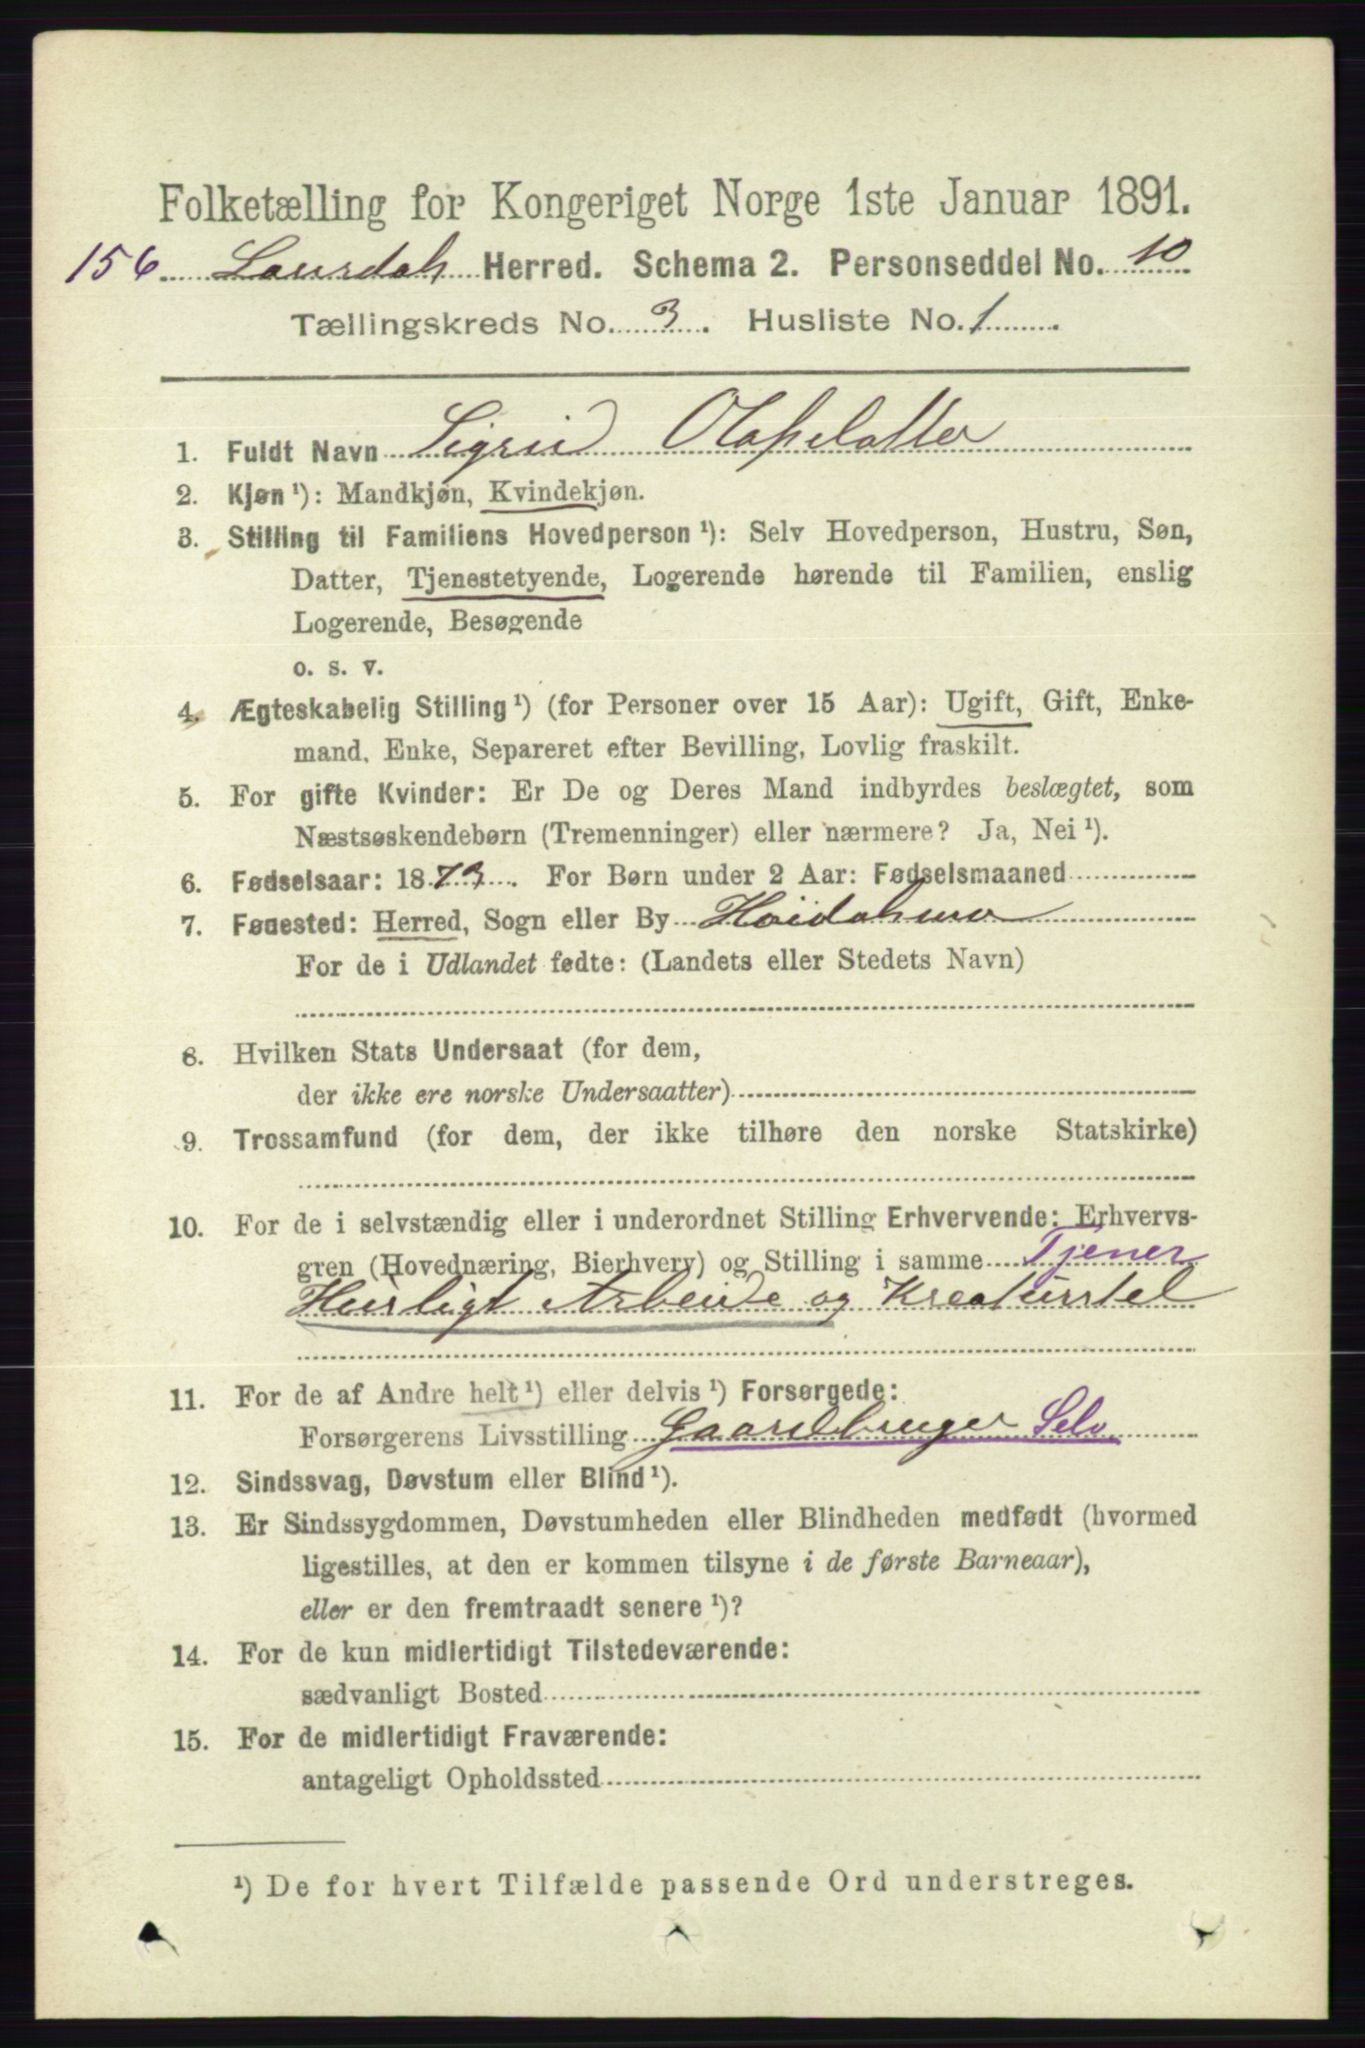 Folketælling for Kongeriget Norge 1ste Januar 1891.
156 Laurdal Herred. Schema 2. Personseddel No. 10
Tællingskreds No. 3. Husliste No. 1
1. Fuldt Navn Sigrid Olafsdatter
2. Kjøn ¹): Mandkjøn, Kvindekjøn.
3. Stilling til Familiens Hovedperson ¹): Selv Hovedperson, Hustru, Søn,
Datter, Tjenestetyende, Logerende hørende til Familien, enslig
Logerende, Besøgende
o. s. v.
4. Ægteskabelig Stilling ¹) (for Personer over 15 Aar): Ugift, Gift, Enke-
mand, Enke, Separeret efter Bevilling, Lovlig fraskilt.
5. For gifte Kvinder: Er De og Deres Mand indbyrdes beslægtet, som
Næstsøskendebørn (Tremenninger) eller nærmere? Ja, Nei ¹).
6. Fødselsaar: 1873. For Børn under 2 Aar: Fødselsmaaned
7. Fødested: Herred, Sogn eller By Høidalsmo
For de i Udlandet fødte: (Landets eller Stedets Navn)
8. Hvilken Stats Undersaat (for dem,
der ikke ere norske Undersaatter)
9. Trossamfund (for dem, der ikke tilhøre den norske Statskirke)
10. For de i selvstændig eller i underordnet Stilling Erhvervende: Erhvervs-
gren (Hovednæring, Bierhverv) og Stilling i samme Tjener
Huusligt Arbeide og Kreaturstel
11. For de af Andre helt ¹) eller delvis ¹) Forsørgede:
Forsørgerens Livsstilling Gaardbruger Selv
12. Sindssvag, Døvstum eller Blind ¹).
13. Er Sindssygdommen, Døvstumheden eller Blindheden medfødt (hvormed
ligestilles, at den er kommen tilsyne i de første Barneaar),
eller er den fremtraadt senere ¹)?
14. For de kun midlertidigt Tilstedeværende:
sædvanligt Bosted
15. For de midlertidigt Fraværende:
antageligt Opholdssted
¹) De for hvert Tilfælde passende Ord understreges.